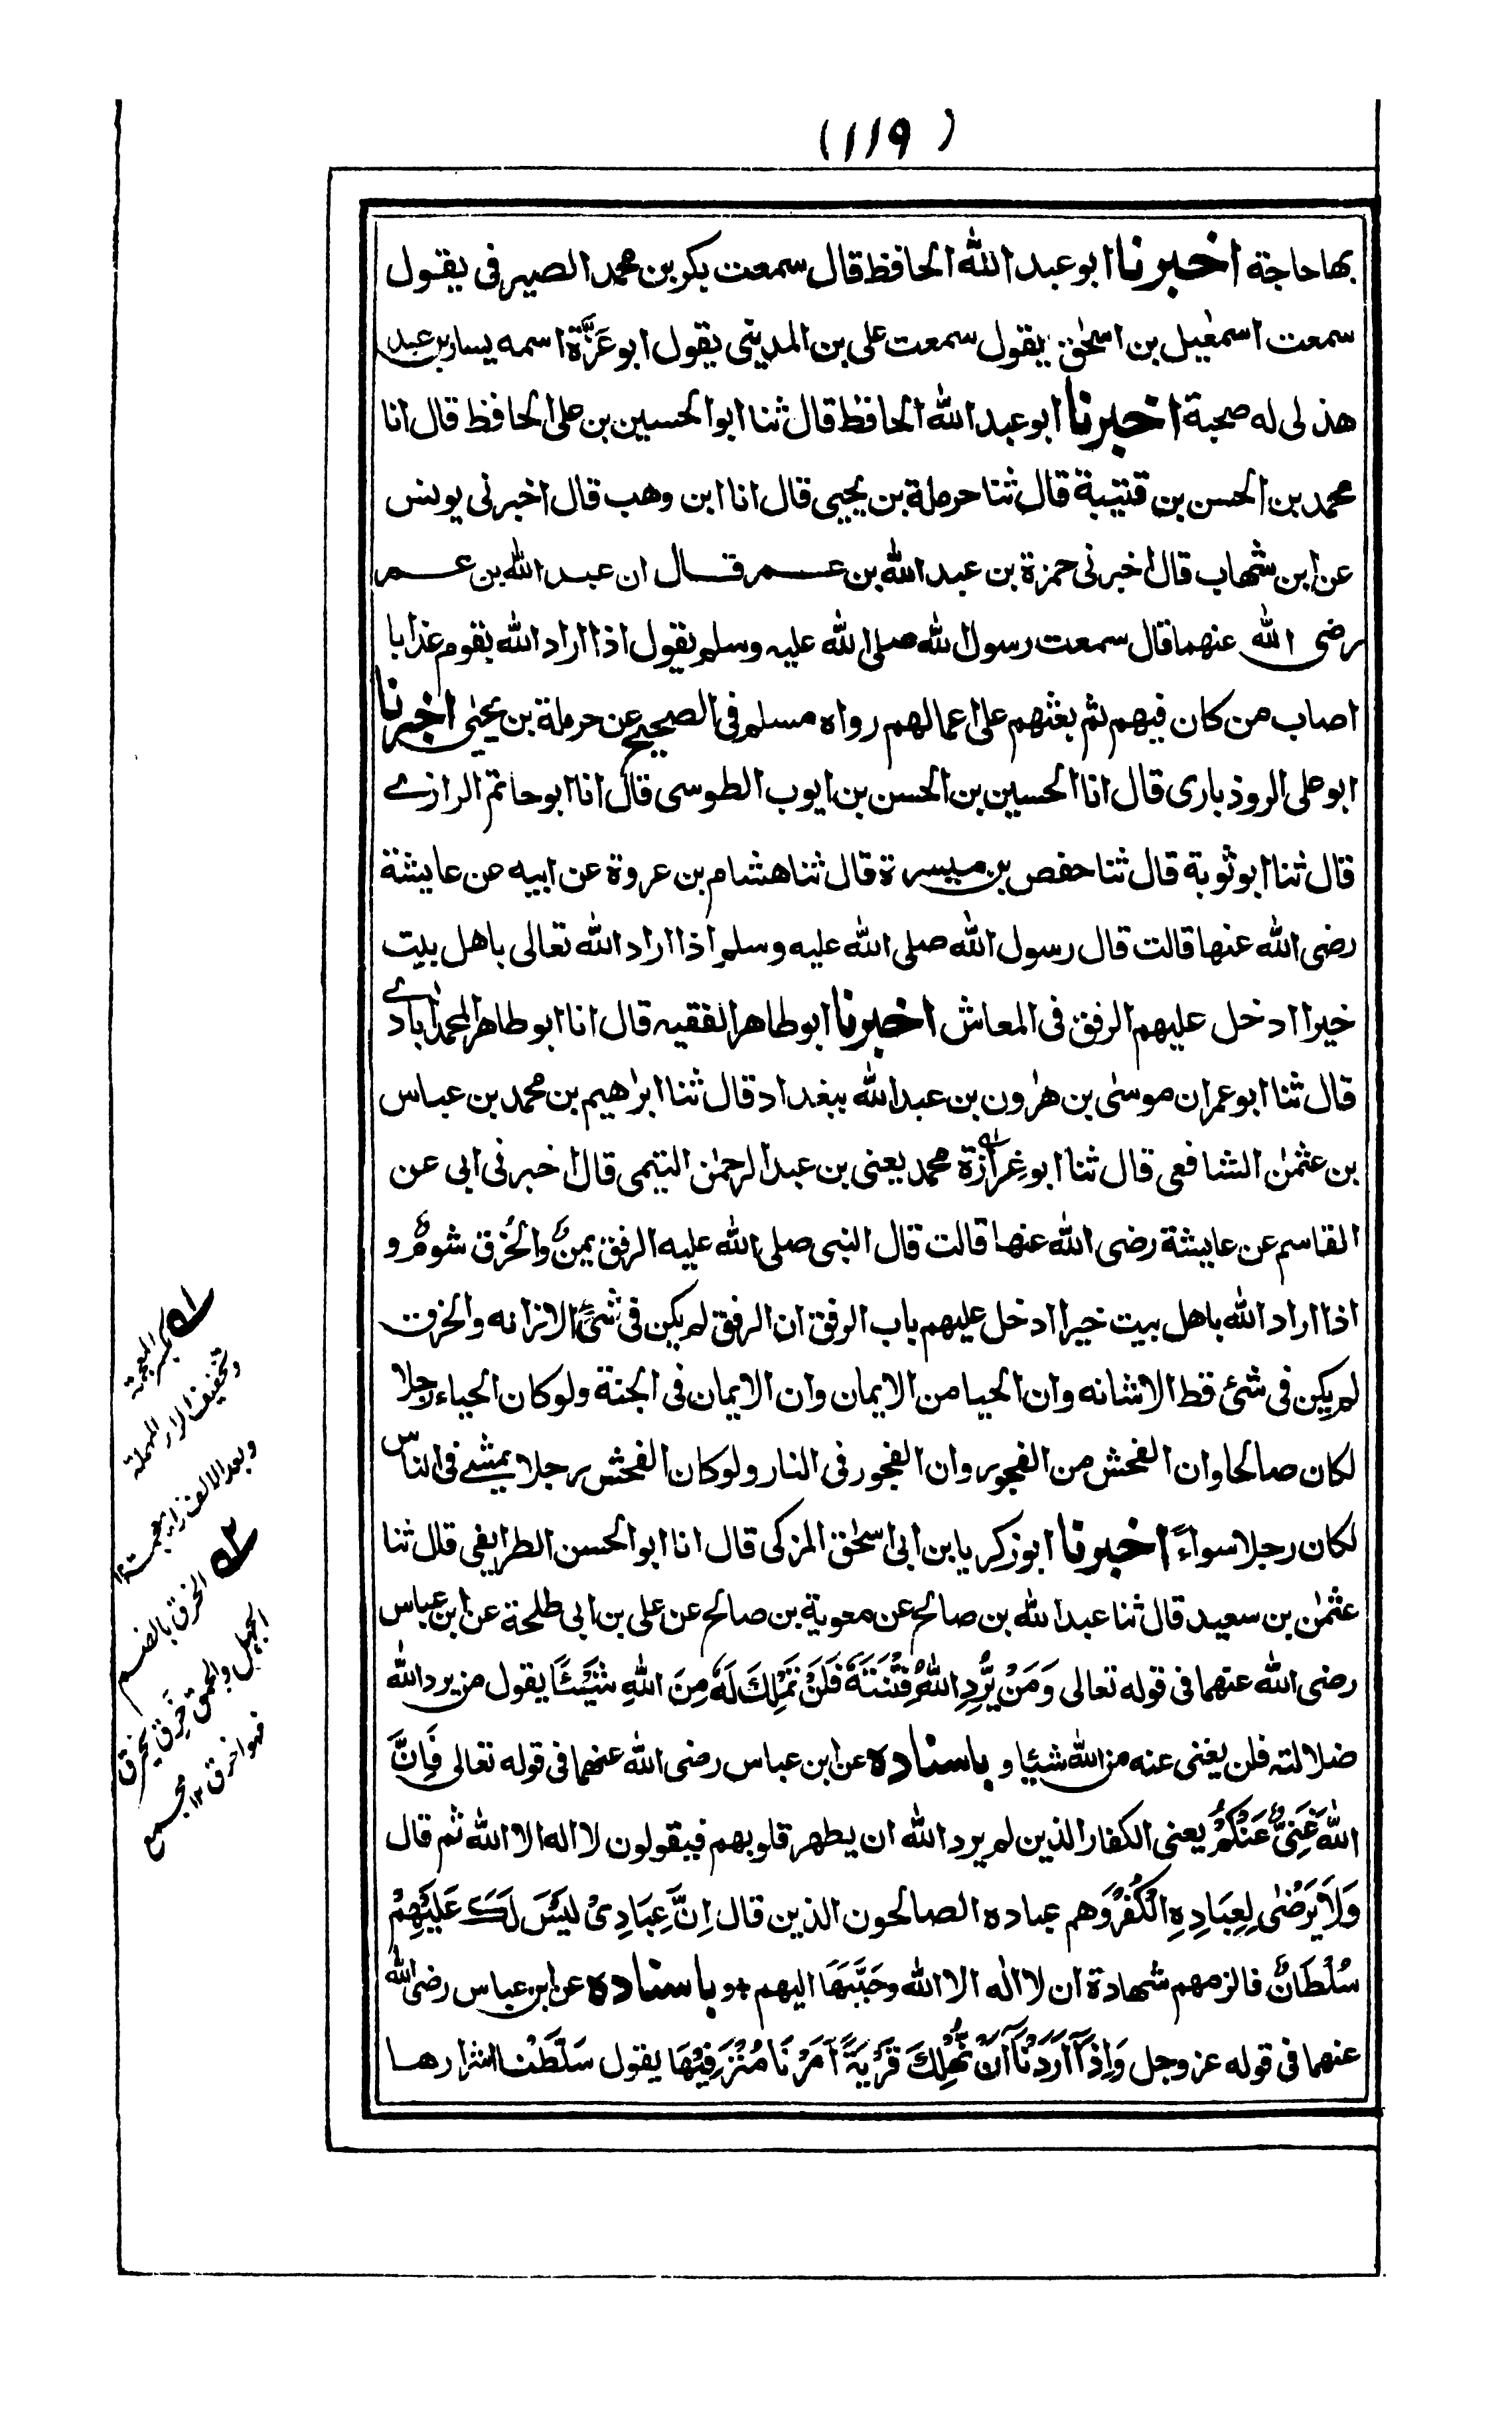 (١١٩)
بها حاجة اخبرنا ابو عبد الله الحافظ قال سمعت بكر بن محمد الصيرفى يقول
سمعت اسمٰعيل بن اسحٰق يقول سمعت على بن المدينى يقول ابو عَزَّة اسمه يسار بن عبد
هذلى له صحبة اخبرنا ابو عبد الله الحافظ قال ثنا ابو الحسين بن على الحافظ قال انا
محمد بن الحسن بن قتيبة قال ثنا حرملة بن يحيى قال انا ابن وهب قال اخبرنى يونس
عن ابن شهاب قال اخبرنى حمزة بن عبد الله بن عمر قال ان عبد الله بن عمر
رضى الله عنهما قال سمعت رسول الله صلى الله عليه وسلم يقول اذا اراد الله بقوم عذابا
اصاب من كان فيهم ثم بعثهم على اعمالهم رواه مسلم فى الصحيح عن حرملة بن يحيٰى اخبرنا
ابو على الروذبارى قال انا الحسين بن الحسن بن ايوب الطوسى قال انا ابو حاتم الرازے
قال ثنا ابو ثوبة قال ثنا حفص بن ميسرة قال ثنا هشام بن عروة عن ابيه عن عايشة
رضى الله عنها قالت قال رسول الله صلى الله عليه وسلم اذا اراد الله تعالى باهل بيت
خيرا ادخل عليهم الرفق فى المعاش اخبرنا ابو طاهر الفقيه قال انا ابو طاهر المحمدآبادے
قال ثنا ابو عمران موسٰى بن هٰرون بن عبد الله ببغداد قال ثنا ابرٰهيم بن محمد بن عباس
بن عثمٰن الشافعى قال ثنا ابو غِرازة محمد يعنى بن عبد الرحمٰن التيمى قال اخبرنى ابى عن
القاسم عن عايشة رضى الله عنها قالت قال النبى صلى الله عليه الرفق يمنٌ والخُرق شومٌ و
اذا اراد الله باهل بيت خيرا ادخل عليهم باب الرفق ان الرفق لم يكن فى شىٍٔ الا زانه والخرق
لم يكن فى شئ قط الا شانه وان الحيا من الايمان وان الايمان فى الجنة ولو كان الحياء رجلا
لكان صالحا وان الفحش من الفجور وان الفجور فى النار ولو كان الفحش رجلا يمشے فى الناس
لكان رجلا سواءً اخبرنا ابو زكريا بن ابى اسحٰق المزكى قال انا ابو الحسن الطرايفى قال ثنا
عثمٰن بن سعيد قال ثنا عبد الله بن صالح عن معوية بن صالح عن على بن ابى طلحة عن ابن عباس
رضى الله عنهما فى قوله تعالى وَمَنْ يُّرِدِ اللهُ فِتْنَتَهٗ فَلَنْ تَمْلِكَ لَهٗ مِنَ اللهِ شَيْـًٔا يقول من يرد الله
ضلالته فلن يغنى عنه من الله شيئا و باسناده عن ابن عباس رضى الله عنهما فى قوله تعالى فَاِنَّ
اللهَ غَنِىٌّ عَنْكُمْ يعنى الكفار الذين لم يرد الله ان يطهر قلوبهم فيقولون لا اله الا الله ثم قال
وَلَا يَرْضٰى لِعِبَادِهِ الْكُفْرَ وهم عباده الصالحون الذين قال اِنَّ عِبَادِىْ لَيْسَ لَكَ عَلَيْهِمْ
سُلْطَانٌ فالزمهم شهادة ان لا اله الا الله وحَبَّبَهَا اليهم + و باسناده عن ابن عباس رضى الله
عنهما فى قوله عز وجل وَاِذَآ اَرَدْنَآ اَنْ نُّهْلِكَ قَرْيَةً اَمَرْنَا مُتْرَفِيْهَا يقول سَلَّطْنا اشرارها
١ه بكسر المعجمة
وتخفيف الراء المهملة
وبعد الالف زاى معجمة ١٢
٢ه الخرق بالضم
الجهل والحمق خَرِقَ يَخرق
فهو اخرق ١٢ مجمع